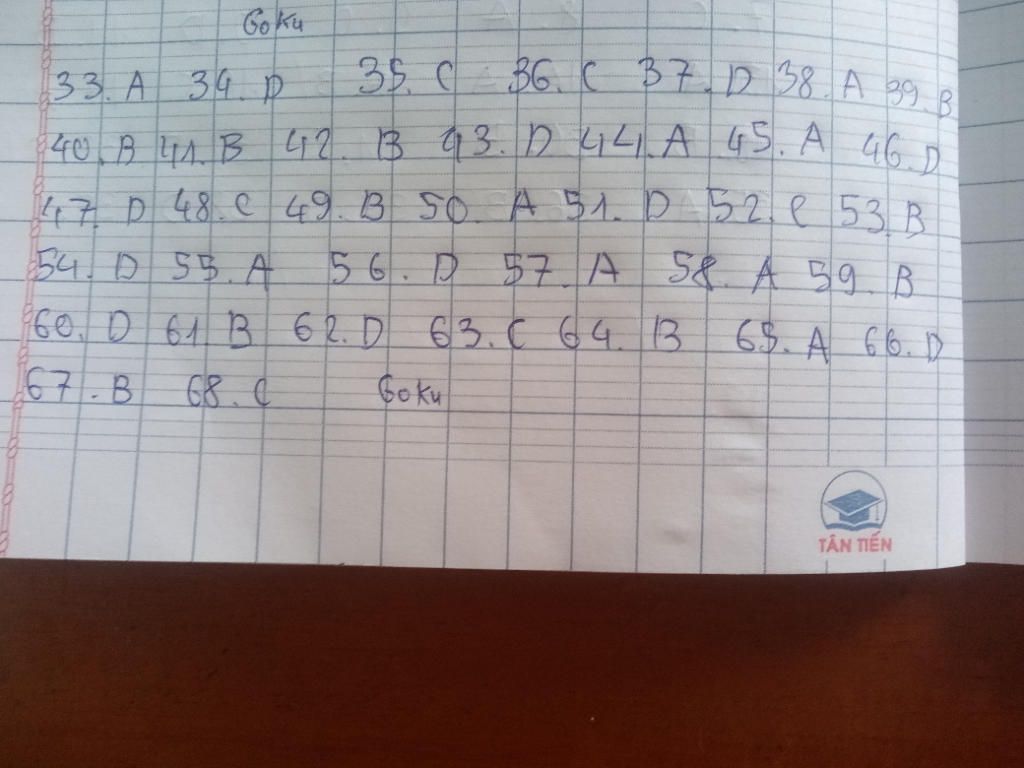 Goku
33. A 34. D 35. C 36. C 37. D 38. A 39. B
40. B 41. B 42. B 43. D 44. A 45. A 46. D
47. D 48. C 49. B 50. A 51. D 52. C 53. B
54. D 55. A 56. D 57. A 58. A 59. B
60. D 61. B 62. D 63. C 64. B 65. A 66. D
67. B 68. C Goku
TÂN TIẾN